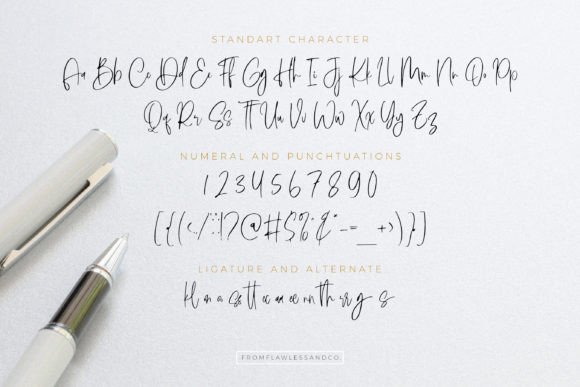 STANDART CHARACTER
Aa Bb Cc Dd Ee Ff Gg Hh Ii Jj Kk Ll Mm Nn Oo Pp
Qq Rr Ss Tt Uu Vv Ww Xx Yy Zz
NUMERAL AND PUNCHTUATIONS
1 2 3 4 5 6 7 8 9 0
LIGATURE AND ALTERNATE
FROMFLAWLESSANDCO.